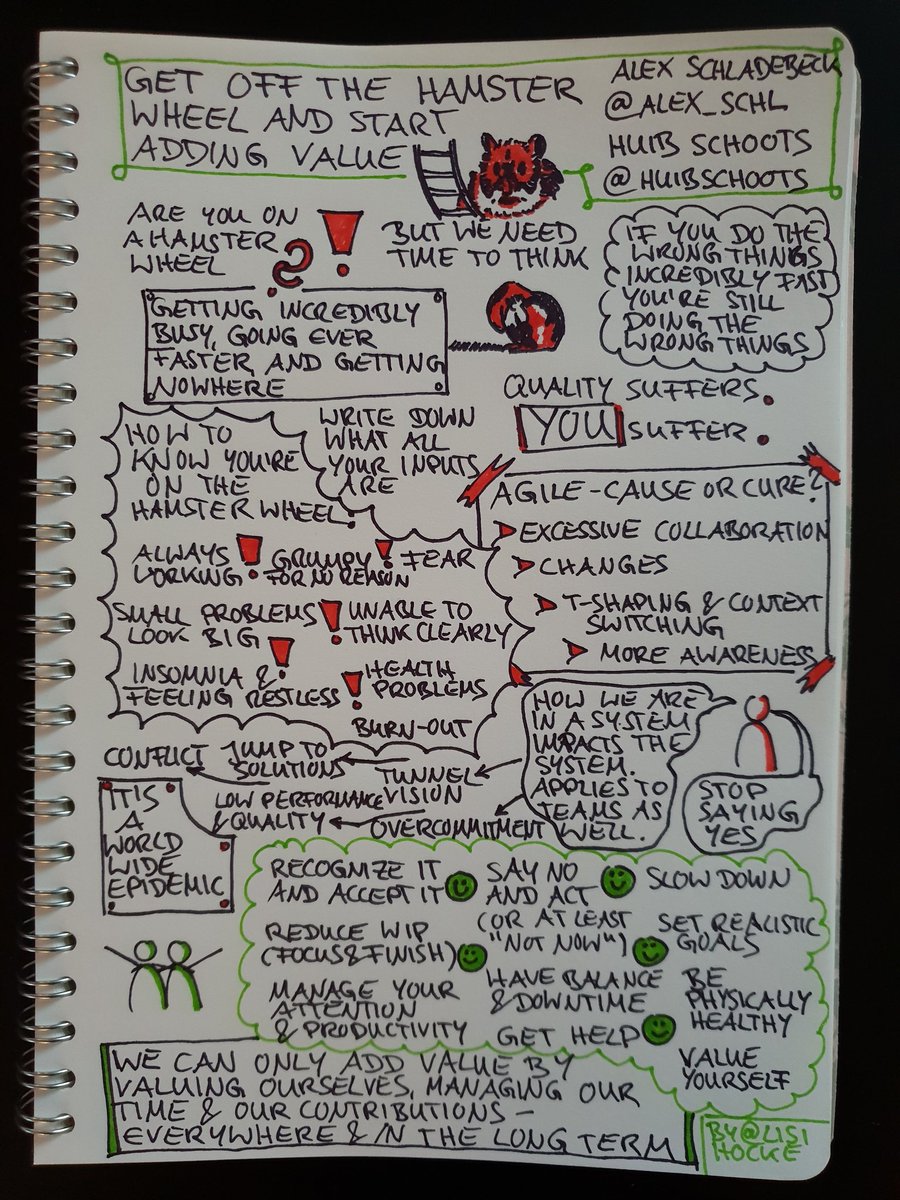 GET OFF THE HAMSTER
WHEEL AND START
ADDING VALUE
ALEX SCHLADEBECK
@ALEX_SCHL
HUIB SCHOOTS
@HUIBSCHOOTS
ARE YOU ON
A HAMSTER
WHEEL ?!
BUT WE NEED
TIME TO THINK
IF YOU DO THE
WRONG THINGS
INCREDIBLY FAST
YOU'RE STILL
DOING THE
WRONG THINGS
GETTING INCREDIBLY
BUSY, GOING EVER
FASTER AND GETTING
NOWHERE
QUALITY SUFFERS.
YOU SUFFER.
HOW TO
KNOW YOU'RE
ON THE
HAMSTER WHEEL:
WRITE DOWN
WHAT ALL
YOUR INPUTS
ARE
ALWAYS
WORKING!
GRUMPY!
FOR NO REASON
FEAR
SMALL PROBLEMS
LOOK BIG
!
UNABLE TO
THINK CLEARLY
!
INSOMNIA &
FEELING RESTLESS
!
HEALTH
PROBLEMS
BURN-OUT
AGILE-CAUSE OR CURE?
EXCESSIVE COLLABORATION
CHANGES
T-SHAPING & CONTEXT
SWITCHING
MORE AWARENESS
HOW WE ARE
IN A SYSTEM
IMPACTS THE
SYSTEM.
APPLIES TO
TEAMS AS
WELL.
STOP
SAYING
YES
CONFLICT
JUMP TO
SOLUTIONS
TUNNEL
VISION
LOW PERFORMANCE
& QUALITY
OVERCOMMITMENT
IT'S
A
WORLD
WIDE
EPIDEMIC
RECOGNIZE IT
AND ACCEPT IT
SAY NO
AND ACT
(OR AT LEAST
"NOT NOW")
SLOW DOWN
REDUCE WIP
(FOCUS & FINISH)
SET REALISTIC
GOALS
MANAGE YOUR
ATTENTION
& PRODUCTIVITY
HAVE BALANCE
& DOWNTIME
BE
PHYSICALLY
HEALTHY
GET HELP
VALUE
YOURSELF
WE CAN ONLY ADD VALUE BY
VALUING OURSELVES, MANAGING OUR
TIME & OUR CONTRIBUTIONS -
EVERYWHERE & IN THE LONG TERM
BY @LISI
HOCKE